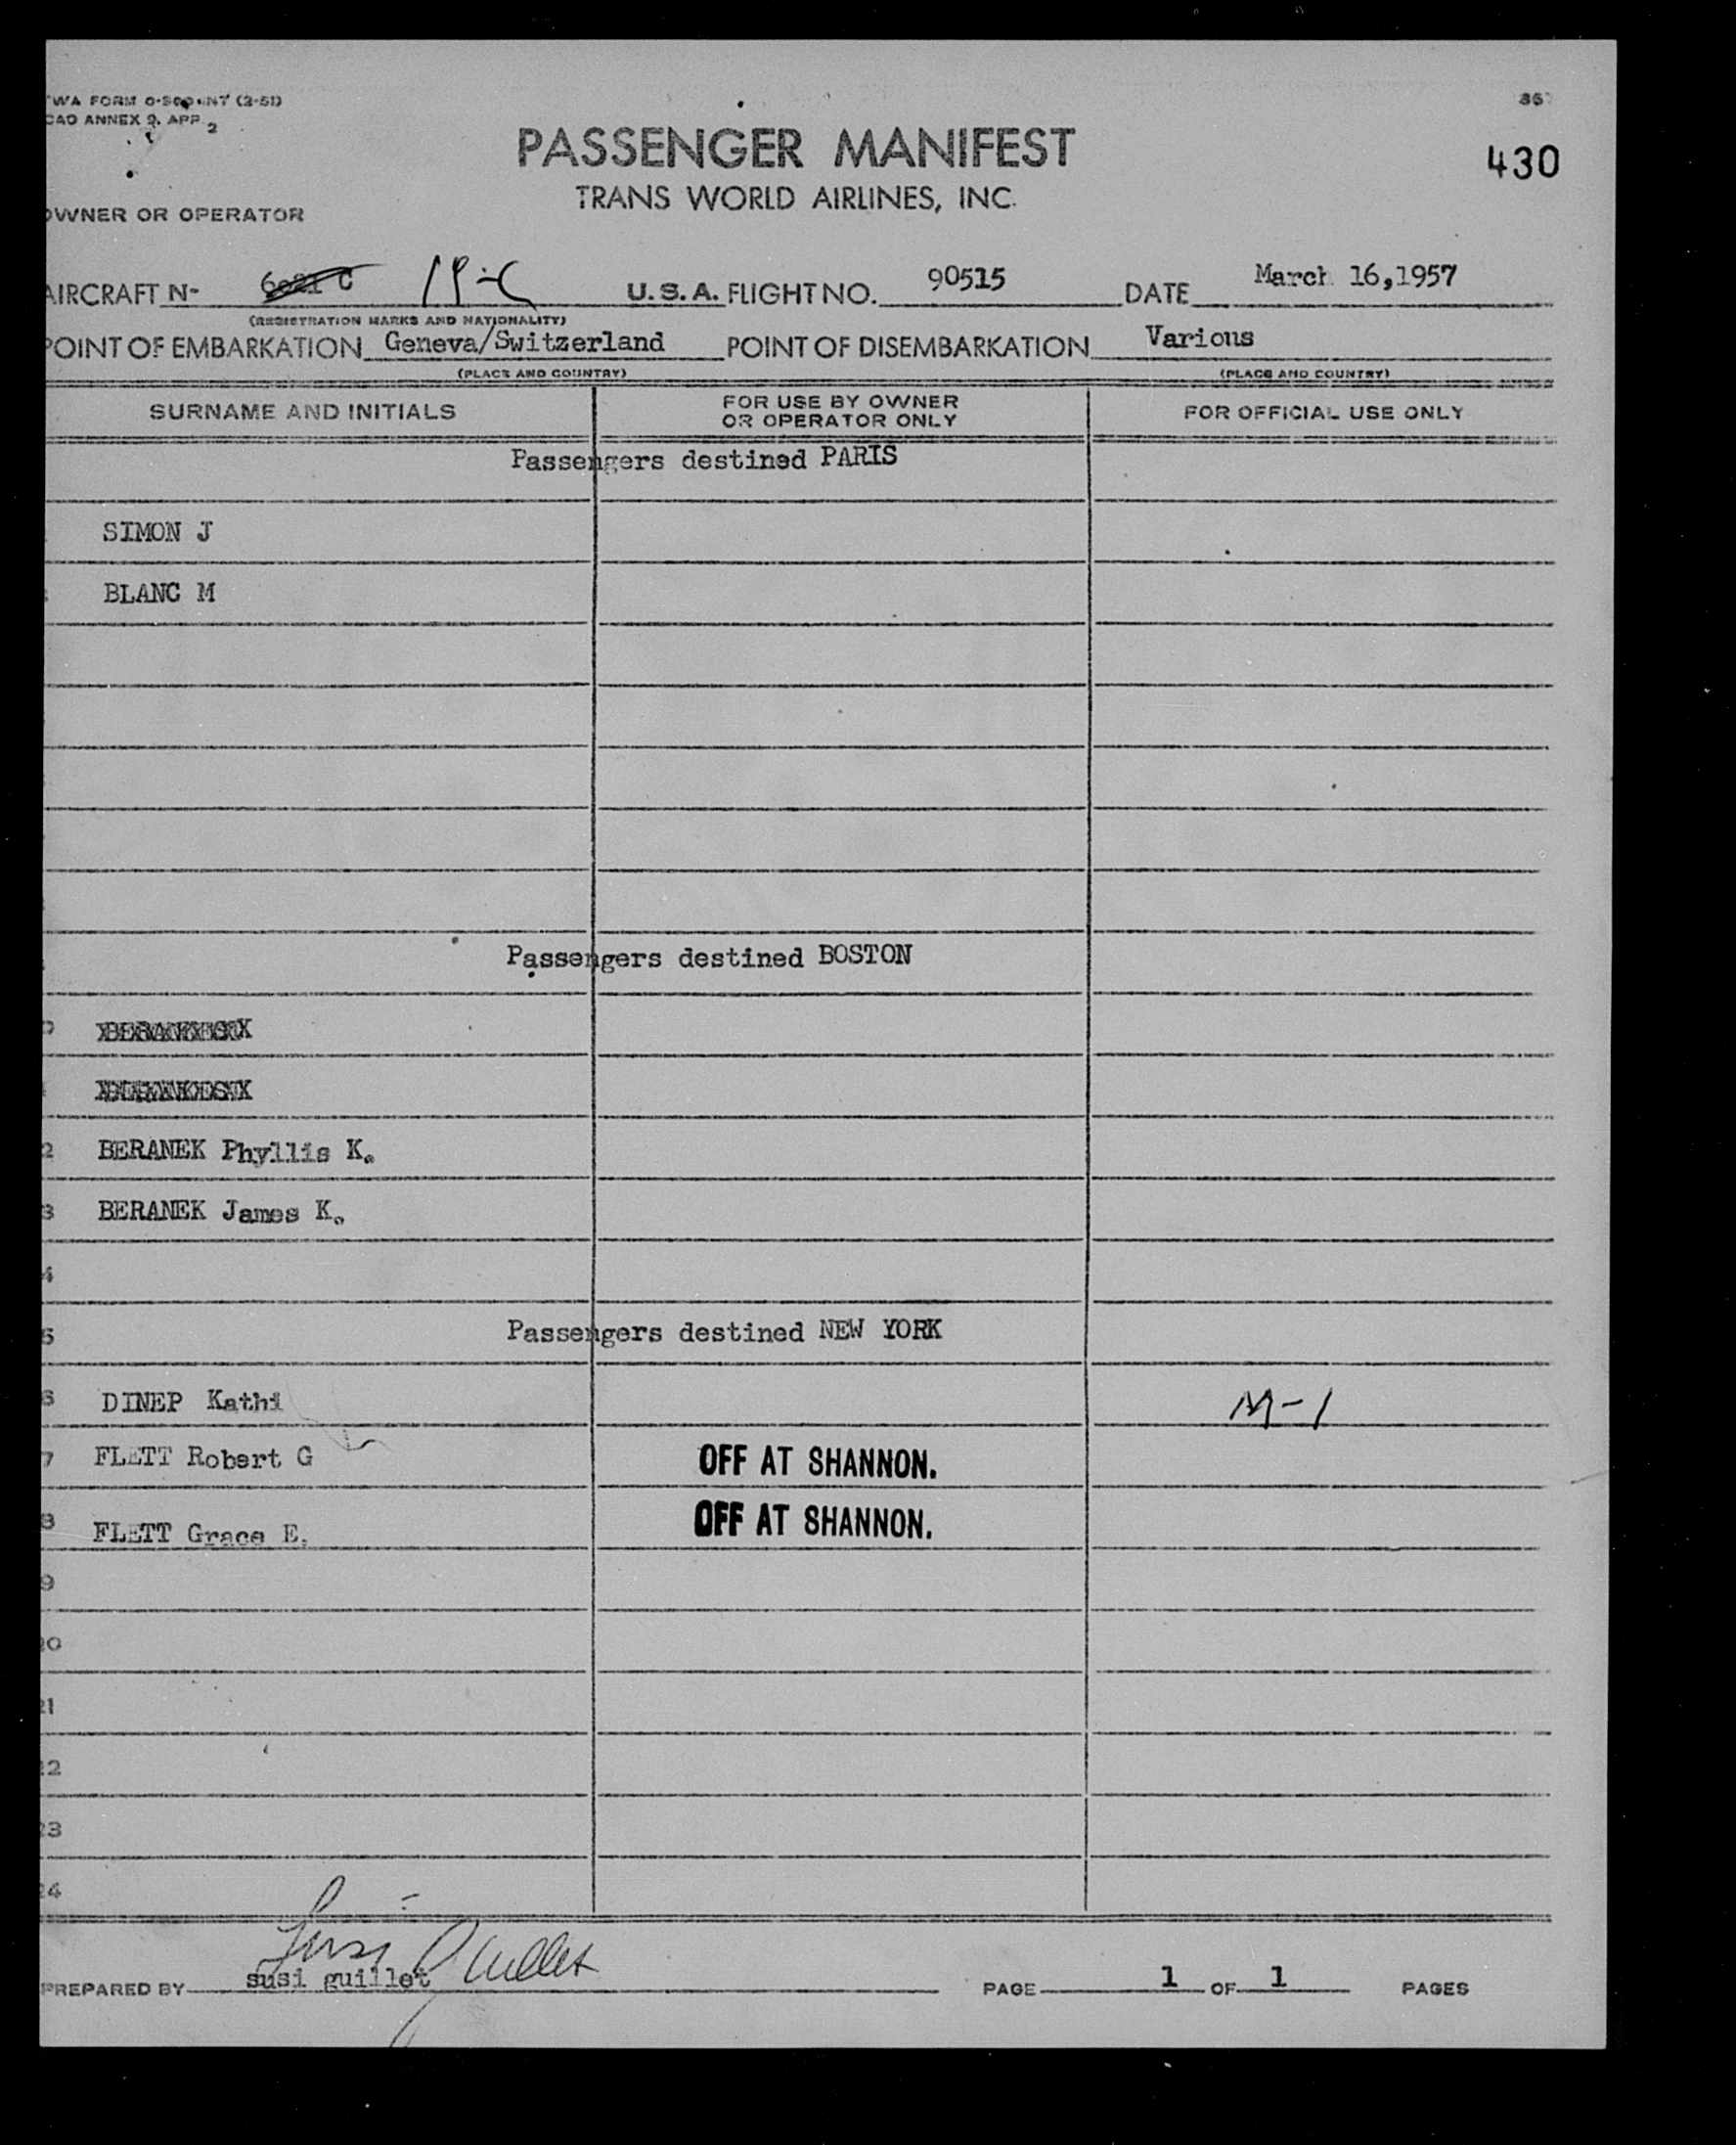 TWA FORM O- INT (2-51)
CAO ANNEX 9. APP 2
PASSENGER MANIFEST
430
TRANS WORLD AIRLINES, INC.
OWNER OR OPERATOR
AIRCRAFT N- U.S.A. FLIGHT NO. 90515 DATE March 16,1957
(REGISTRATION MARKS AND NATIONALITY)
POINT OF EMBARKATION Geneva/Switzerland POINT OF DISEMBARKATION Various
(PLACE AND COUNTRY) (PLACE AND COUNTRY)
SURNAME AND INITIALS FOR USE BY OWNER OR OPERATOR ONLY FOR OFFICIAL USE ONLY
Passengers destined PARIS
SIMON J
BLANC M
Passengers destined BOSTON
2 BERANEK Phyllis K.
3 BERANEK James K.
4
5 Passengers destined NEW YORK
6 DINEP Kathi M-1
7 FLETT Robert G OFF AT SHANNON.
8 FLETT Grace E. OFF AT SHANNON.
9
20
21
22
23
24
PREPARED BY susi guillet PAGE 1 OF 1 PAGES